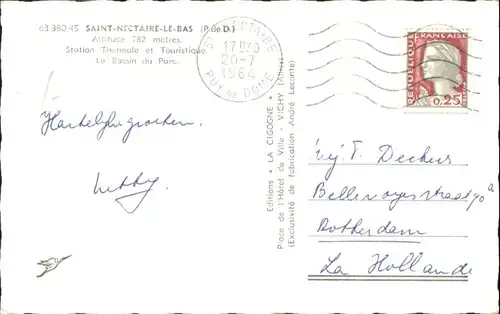 63 380.45 SAINT-NECTAIRE-LE-BAS (P. de D.)
Altitude 782 mètres.
Station Thermale et Touristique
Le Bassin du Parc
ST NECTAIRE
17H30
20-7
1964
PUY DE DOME
REPUBLIQUE FRANÇAISE
0,25
Hartelijke groeten.
Editions • LA CIGOGNE •
Place de l'Hôtel de Ville - VICHY (Allier)
(Exclusivité de fabrication André Leconte)
Mej. T. Deckers
Rotterdam
La Hollande